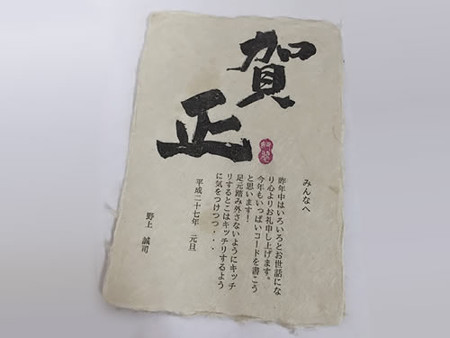 賀
正
みんなへ
昨年中はいろいろとお世話にな
り心よりお礼申し上げます。
今年もいっぱいコードを書こう
と思います！
足元踏み外さないようにキッチ
リするとこはキッチリするよう
に気をつけつつ・・・
平成二十七年　元旦
野上　誠司